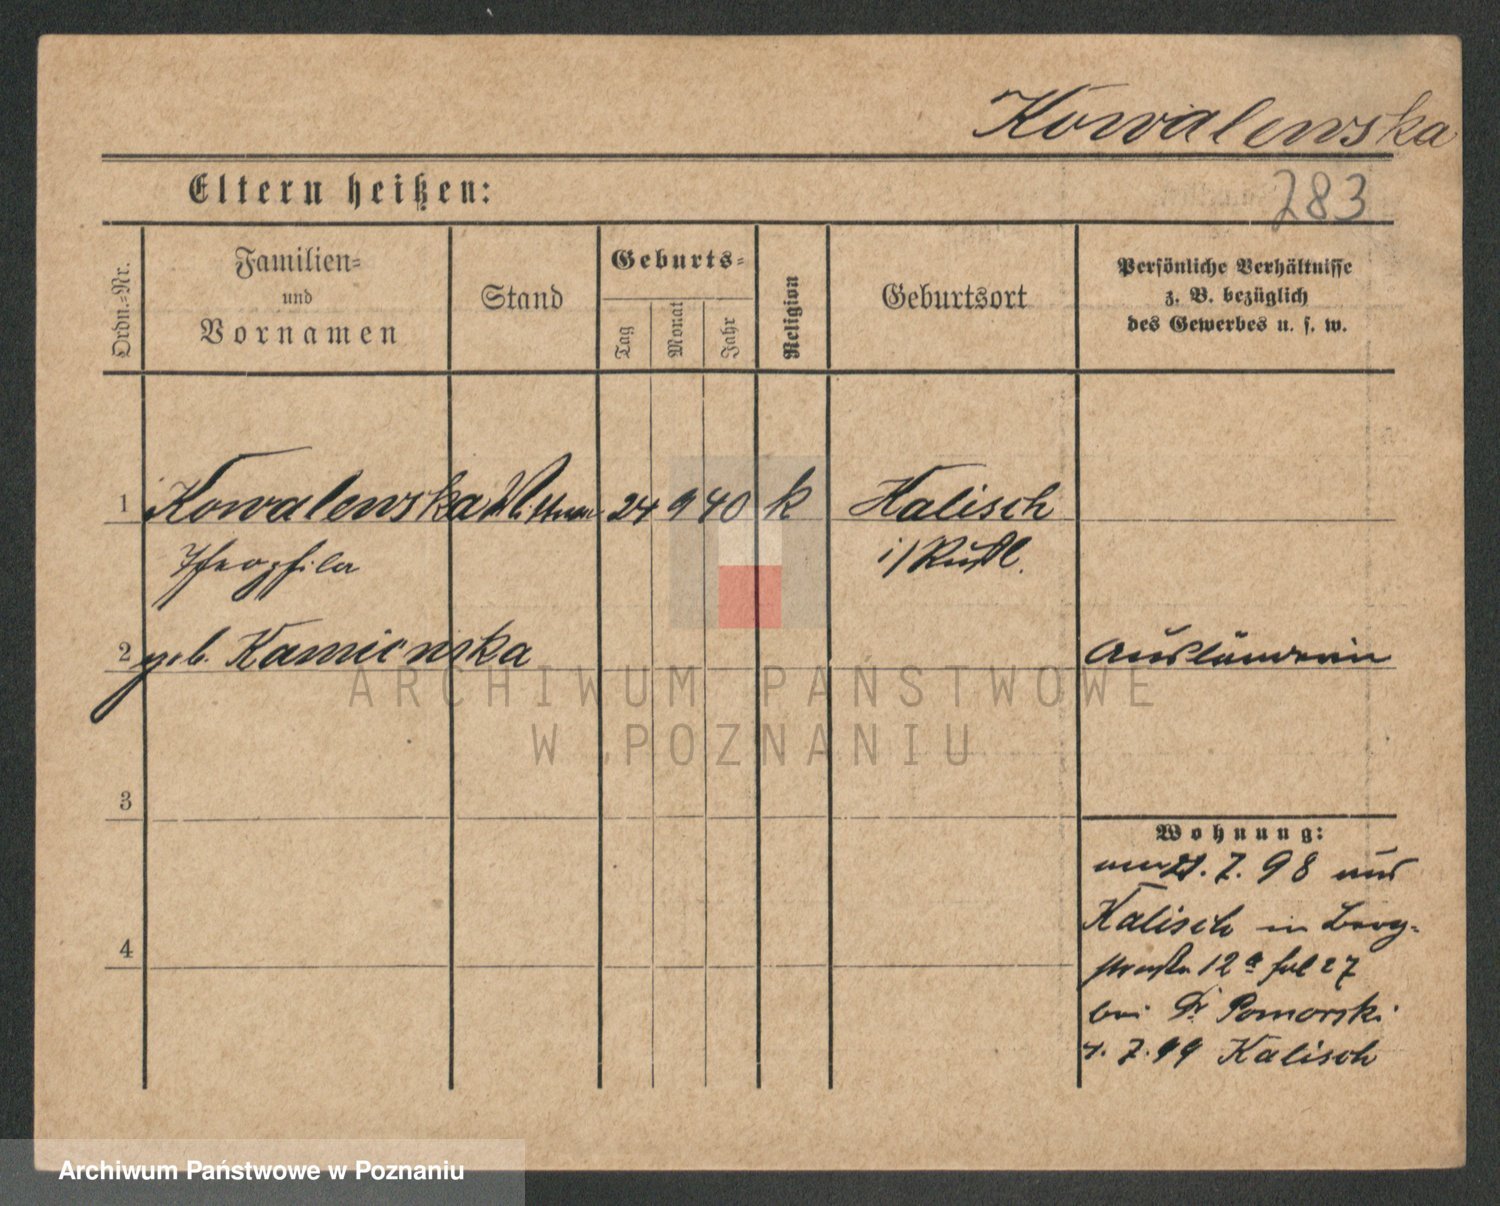 Kowalewska
Eltern heißen:
283
Ordn.-Nr.
Familien-
und
Vornamen
Stand
Geburts-
Tag
Monat
Jahr
Religion
Geburtsort
Persönliche Verhältnisse
z. B. bezüglich
des Gewerbes u. s. w.
1 Kowalewska 24 9 40 k Kalisch
Theophila i/Rußl.
2 geb. Kamienska Ausländerin
ARCHIWUM PAŃSTWOWE
W POZNANIU
3
Wohnung:
21.7.98 aus
Kalisch in Berg-
4
straße 12a 27
bei Dr Pomorski
7.99 Kalisch
Archiwum Państwowe w Poznaniu